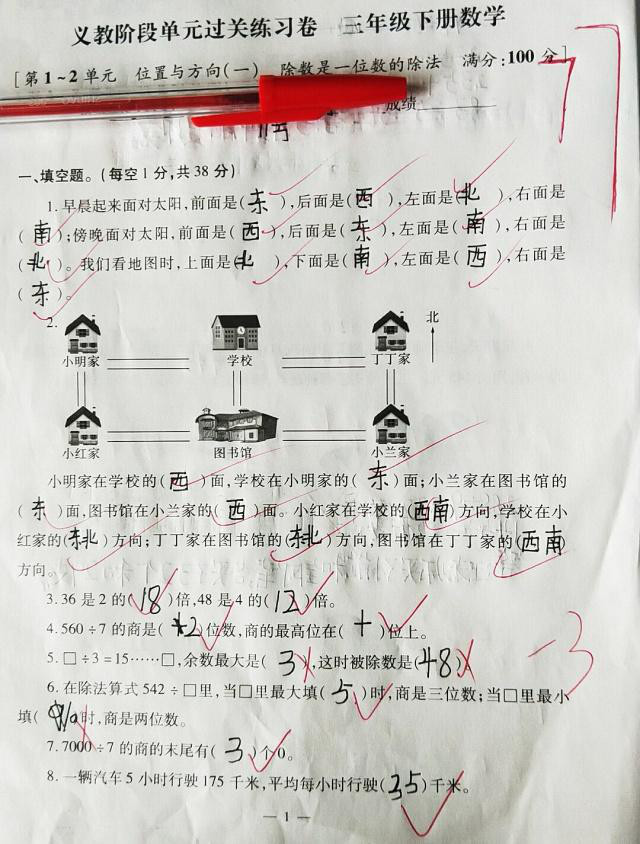 义教阶段单元过关练习卷 三年级下册数学
[第1~2单元 位置与方向(一) 除数是一位数的除法 满分:100分]
成绩
一、填空题。(每空1分,共38分)
1.早晨起来面对太阳,前面是(东),后面是(西),左面是(北),右面是
(南);傍晚面对太阳,前面是(西),后面是(东),左面是(南),右面是
(北)。我们看地图时,上面是(北),下面是(南),左面是(西),右面是
(东)。
2.
北
小明家 学校 丁丁家
小红家 图书馆 小兰家
小明家在学校的(西)面,学校在小明家的(东)面;小兰家在图书馆的
(东)面,图书馆在小兰家的(西)面。小红家在学校的(西南)方向,学校在小
红家的(东北)方向;丁丁家在图书馆的(东北)方向,图书馆在丁丁家的(西南)
方向。
3.36是2的(18)倍,48是4的(12)倍。
4.560÷7的商是(2)位数,商的最高位在(十)位上。
5.□÷3=15……□,余数最大是(3),这时被除数是(48)。
-3
6.在除法算式542÷□里,当□里最大填(5)时,商是三位数;当□里最小
填( )时,商是两位数。
7.7000÷7的商的末尾有(3)个0。
8.一辆汽车5小时行驶175千米,平均每小时行驶(35)千米。
— 1 —